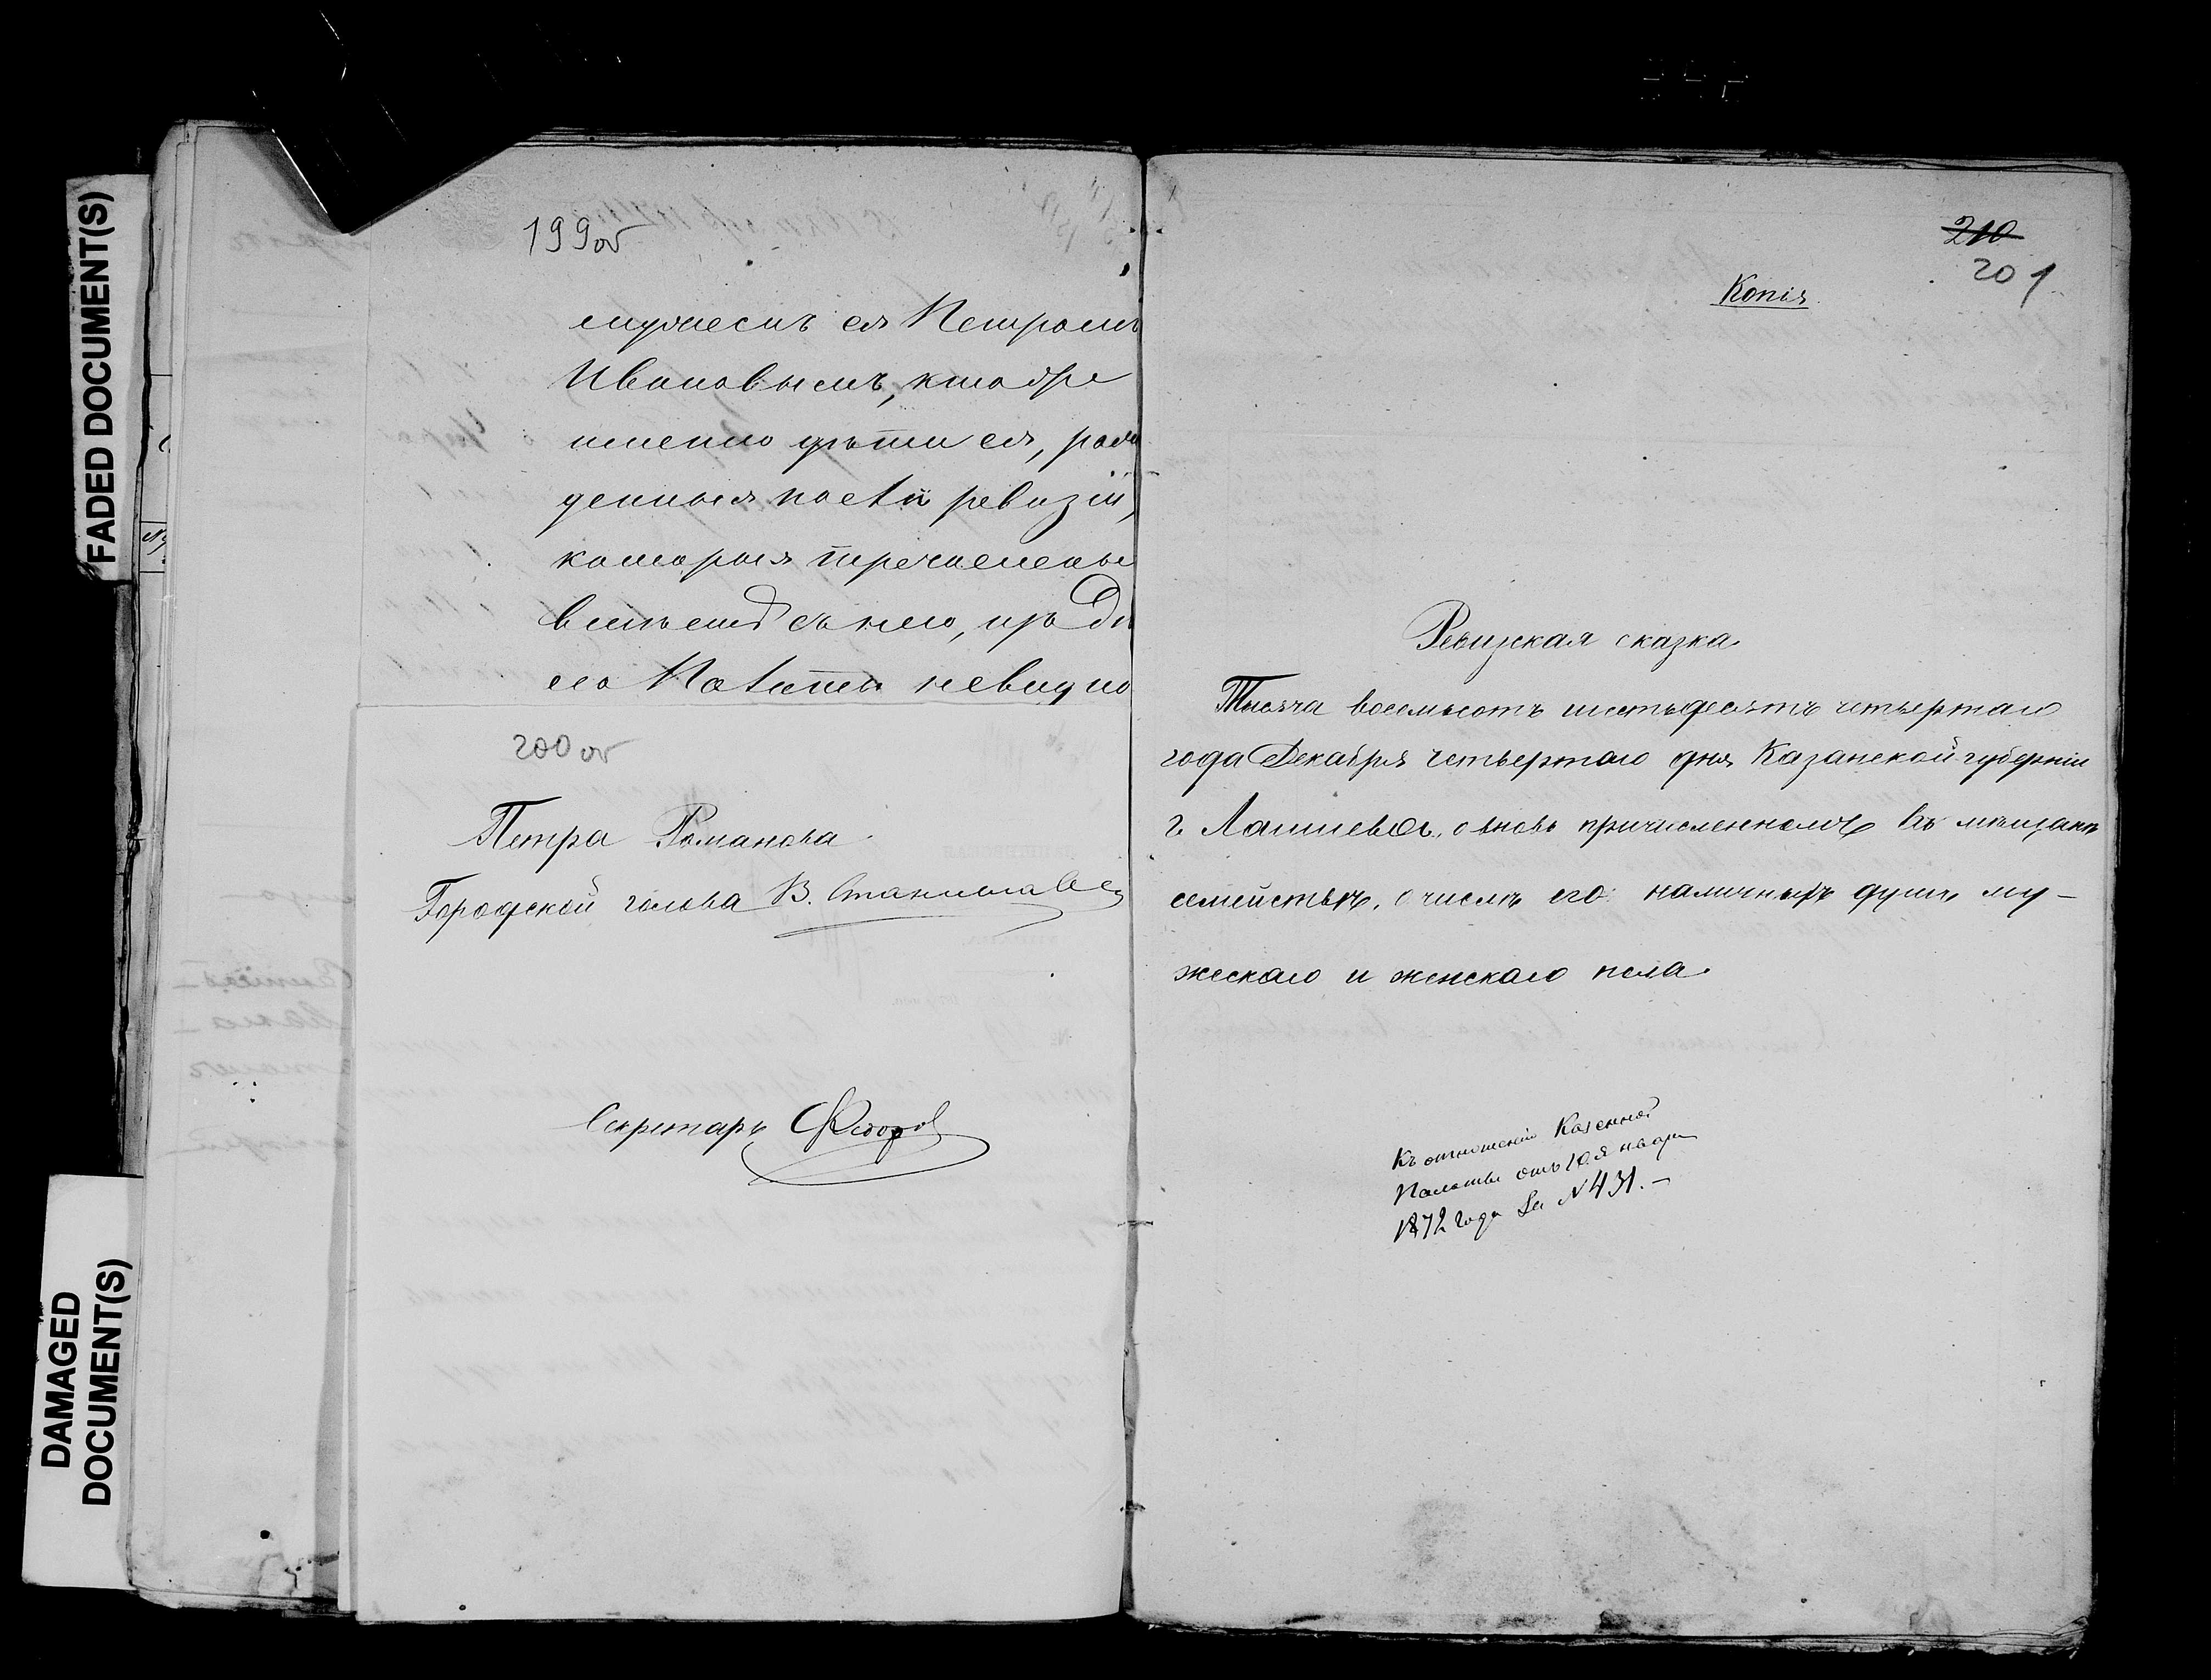 FADED DOCUMENT(S)
DAMAGED
DOCUMENT(S)
199об
мужемъ ея Петромъ
Ивановымъ, кто же
именно дѣти ея, рож
денныя послѣ ревизіи,
которыя причислены
вмѣстѣ съ нею, изъ дѣ
ла Палаты невидно
200об
Петра Романова
Городской голова В.
Секретарь Ѳедоров
210
201
Копія
Ревизская сказка
Тысяча восемьсотъ шестьдесятъ четвертаго
года Декабря четвертаго дня Казанской губерніи
г. Лаишева, о вновь причисленномъ въ мѣщане
семействѣ, о числѣ его наличныхъ душъ му-
жескаго и женскаго пола.
Къ отношенію Казенной
Палаты отъ 10 января
1872 года За № 431.-